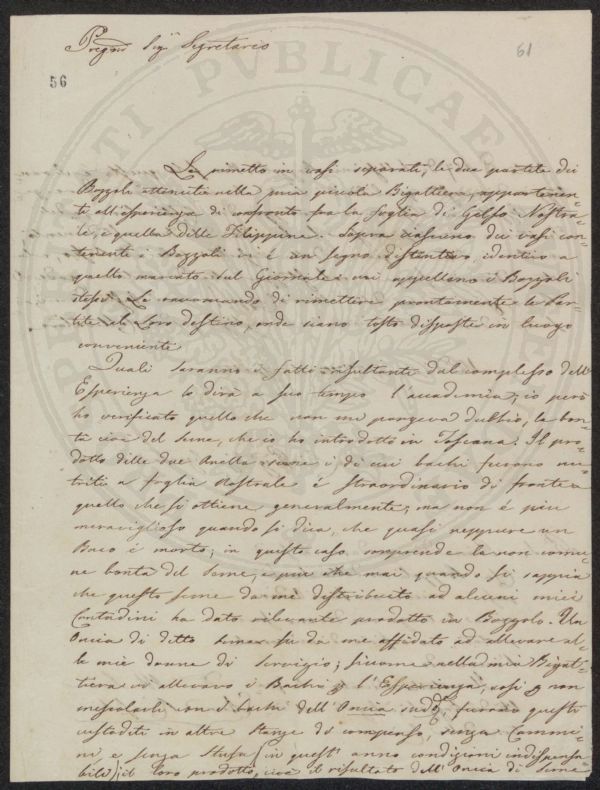 Pregmo Sigr Segretario
61
56
Le rimetto in vasi separati, le due partite dei
Bozzoli ottenute nella mia piccola Bigattiera, appartenen-
ti all'esperienza di confronto fra la foglia di Gelso Nostra-
le, e quella delle Filippine. Sopra ciascuno dei vasi con-
tenente i Bozzoli vi è un segno distintivo, identico a
quello marcato sul Giornale cui appellano i Bozzoli
stessi. Le raccomando di rimettere prontamente le Par-
tite al Loro destino, onde siano tosto disposte in luogo
conveniente
Quali saranno i fatti resultante dal complesso dell'
Esperienza lo dirà a suo tempo l'accademia; io però
ho verificato quello che non mi porgeva dubbio, la bon-
tà cioè del seme, che io ho introdotto in Toscana. Il pro-
dotto delle due Anella i di cui bachi furono nu-
triti a foglia Nostrale è straordinario di fronte a
quello che si ottiene generalmente; ma non è più
meraviglioso quando si dica, che quasi neppure un
Baco è morto; in questo caso sorprende la non comu-
ne bontà del seme, e più che mai quando si sappia
che questo seme da me distribuito ad alcuni miei
Contadini ha dato rilevante prodotto in Bozzolo. Un
Oncia di ditto seme fu da me affidato ad allevare al-
le mie donne di servizio; siccome nella mia Bigat-
tiera vi allevavo i Bachi p l'Esperienza, così p non
mescolarli con i bachi dell'Oncia sudda, furono questi
custoditi in altre stanze di compenso, senza Cammi-
ni, e senza Stufa (in quest'anno condizioni indispensa-
bili); il loro prodotto, cioè il risultato dell'Oncia di seme